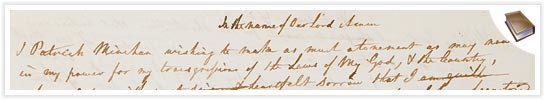 In the name of Our Lord Amen
I Patrick Minehan wishing to make as much atonement as may now
in my power for my transgressions of the Laws of My God, & the Country,
heartfelt sorrow that I am guilty